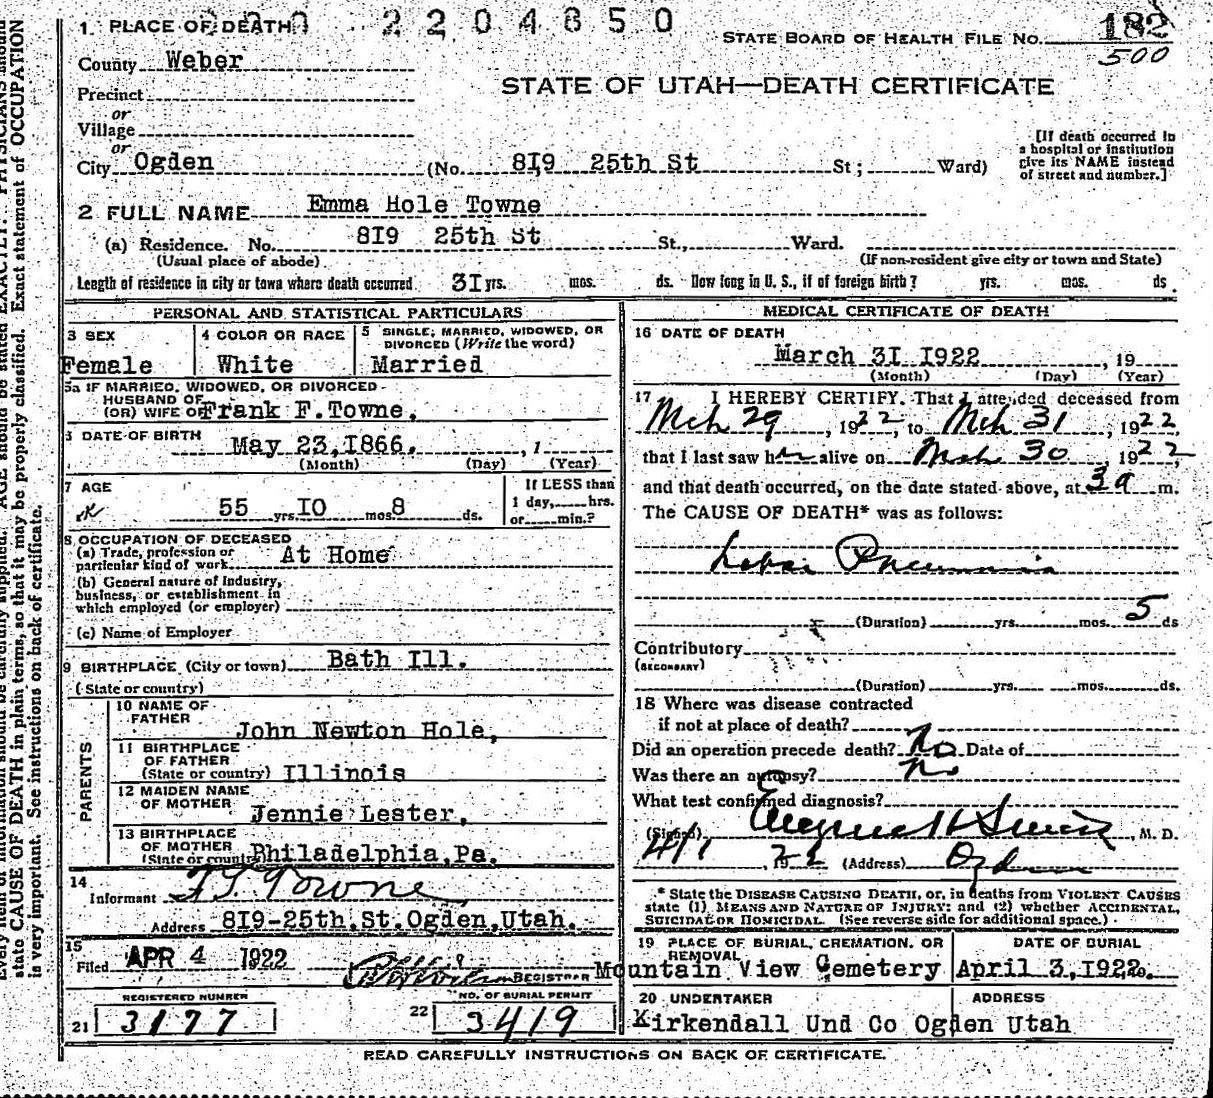 2204850
1 PLACE OF DEATH
STATE BOARD OF HEALTH FILE NO. 182
500
County Weber
STATE OF UTAH—DEATH CERTIFICATE
Precinct
or
Village
or
City Ogden (No. 8I9 25th St St; Ward)
[If death occurred in
a hospital or institution
give its NAME instead
of street and number.]
2 FULL NAME Emma Hole Towne
(a) Residence. No. 8I9 25th St St., Ward.
(Usual place of abode) (If non-resident give city or town and State)
Length of residence in city or town where death occurred 3I yrs. mos. ds. How long in U. S., if of foreign birth? yrs. mos. ds.
PERSONAL AND STATISTICAL PARTICULARS
3 SEX
Female
4 COLOR OR RACE
White
5 SINGLE, MARRIED, WIDOWED, OR
DIVORCED (Write the word)
Married
5a IF MARRIED, WIDOWED, OR DIVORCED
HUSBAND OF
(OR) WIFE OF Frank F.Towne.
6 DATE OF BIRTH May 23,I866. , 1
(Month) (Day) (Year)
7 AGE
55 yrs. IO mos. 8 ds.
If LESS than
1 day, hrs.
or min.?
8 OCCUPATION OF DECEASED
(a) Trade, profession or
particular kind of work At Home
(b) General nature of Industry,
business, or establishment in
which employed (or employer)
(c) Name of Employer
9 BIRTHPLACE (City or town) Bath Ill.
(State or country)
PARENTS
10 NAME OF
FATHER
John Newton Hole,
11 BIRTHPLACE
OF FATHER
(State or country) Illinois
12 MAIDEN NAME
OF MOTHER
Jennie Lester,
13 BIRTHPLACE
OF MOTHER
(State or country) Philadelphia,Pa.
14
Informant F. F. Towne
Address 8I9-25th.St.Ogden,Utah.
15
Filed APR 4 1922
REGISTRAR
REGISTERED NUMBER
21 3177
NO. OF BURIAL PERMIT
22 3419
MEDICAL CERTIFICATE OF DEATH
16 DATE OF DEATH
March 3I I922 , 19
(Month) (Day) (Year)
17 I HEREBY CERTIFY. That I attended deceased from
Mch 29, 1922, to Mch 31, 1922,
that I last saw her alive on Mch 30, 1922,
and that death occurred, on the date stated above, at 3 a m.
The CAUSE OF DEATH* was as follows:
Lobar Pneumonia
(Duration) yrs. mos. 5 ds
Contributory
(SECONDARY)
(Duration) yrs. mos. ds.
18 Where was disease contracted
if not at place of death?
Did an operation precede death? No Date of
Was there an autopsy? No
What test confirmed diagnosis?
(Signed) Eugene H Smith, M. D.
4/1, 22 (Address) Ogden
* State the DISEASE CAUSING DEATH, or, in deaths from VIOLENT CAUSES
state (1) MEANS AND NATURE OF INJURY; and (2) whether ACCIDENTAL,
SUICIDAL OR HOMICIDAL. (See reverse side for additional space.)
19 PLACE OF BURIAL, CREMATION, OR
REMOVAL
Mountain View Cemetery
DATE OF BURIAL
April 3,I922.
20 UNDERTAKER
Kirkendall Und Co Ogden Utah
ADDRESS
READ CAREFULLY INSTRUCTIONS ON BACK OF CERTIFICATE.
AGE should be stated EXACTLY. PHYSICIANS should
state CAUSE OF DEATH in plain terms, so that it may be properly classified. Exact statement of OCCUPATION
is very important. See instructions on back of certificate.